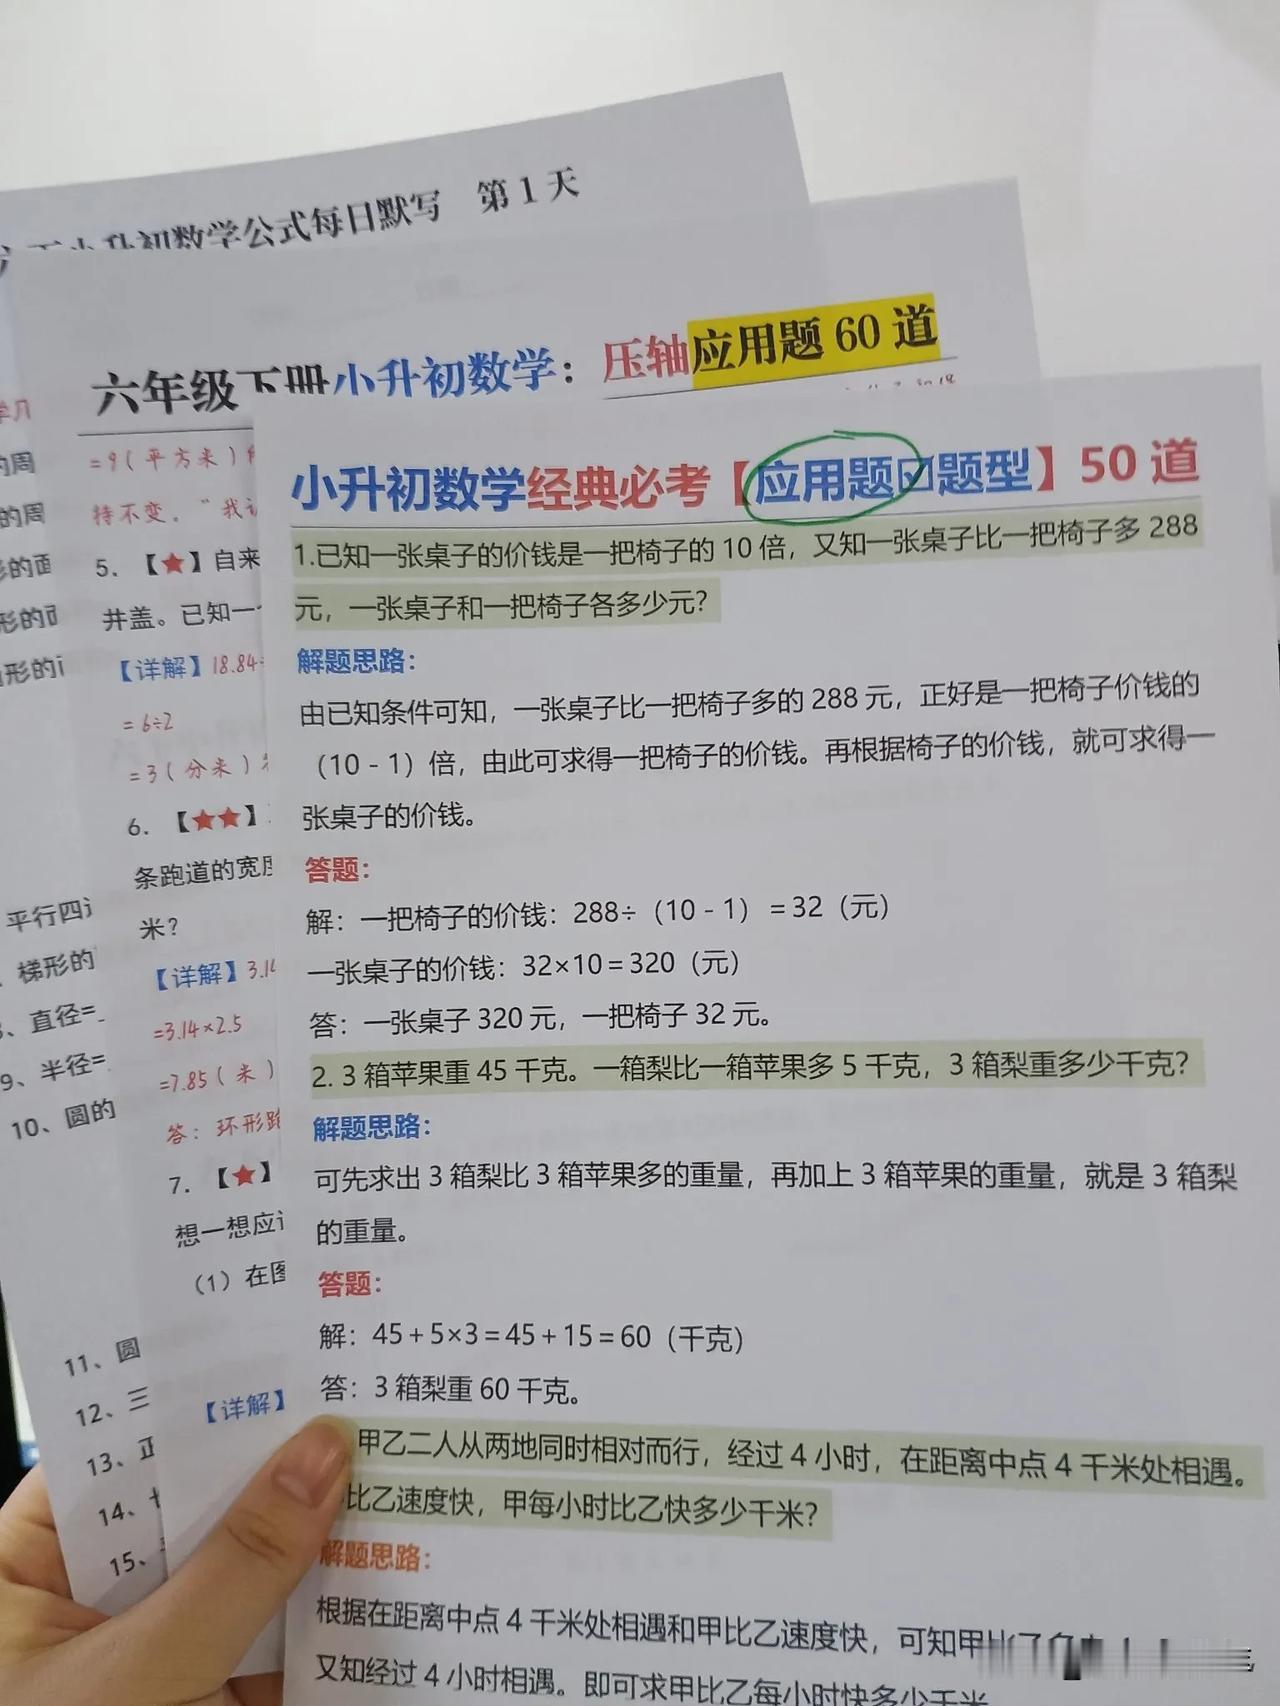 小升初数学公式每日默写 第1天
六年级下册小升初数学：压轴应用题60道
=9（平方米）
持不变．“我
5．【★】自来
井盖。已知一
【详解】18.84÷
=6÷2
=3（分米）
6．【★★】
条跑道的宽度
米？
【详解】3.14
=3.14×2.5
=7.85（米）
答：环形跑
7．【★】
想一想应
（1）在图
【详解】
的周
的周
形的面
形的
形的
平行四
梯形的
、直径=
9、半径=
10、圆的
11、圆
12、三
13、正
14、
15、
小升初数学经典必考【应用题☑题型】50道
1.已知一张桌子的价钱是一把椅子的10倍，又知一张桌子比一把椅子多288
元，一张桌子和一把椅子各多少元？
解题思路：
由已知条件可知，一张桌子比一把椅子多的288元，正好是一把椅子价钱的
（10-1）倍，由此可求得一把椅子的价钱。再根据椅子的价钱，就可求得一
张桌子的价钱。
答题：
解：一把椅子的价钱：288÷（10-1）=32（元）
一张桌子的价钱：32×10=320（元）
答：一张桌子320元，一把椅子32元。
2. 3箱苹果重45千克。一箱梨比一箱苹果多5千克，3箱梨重多少千克？
解题思路：
可先求出3箱梨比3箱苹果多的重量，再加上3箱苹果的重量，就是3箱梨
的重量。
答题：
解：45+5×3=45+15=60（千克）
答：3箱梨重60千克。
甲乙二人从两地同时相对而行，经过4小时，在距离中点4千米处相遇。
比乙速度快，甲每小时比乙快多少千米？
解题思路：
根据在距离中点4千米处相遇和甲比乙速度快，可知甲比乙
又知经过4小时相遇。即可求甲比乙每小时快多少千米